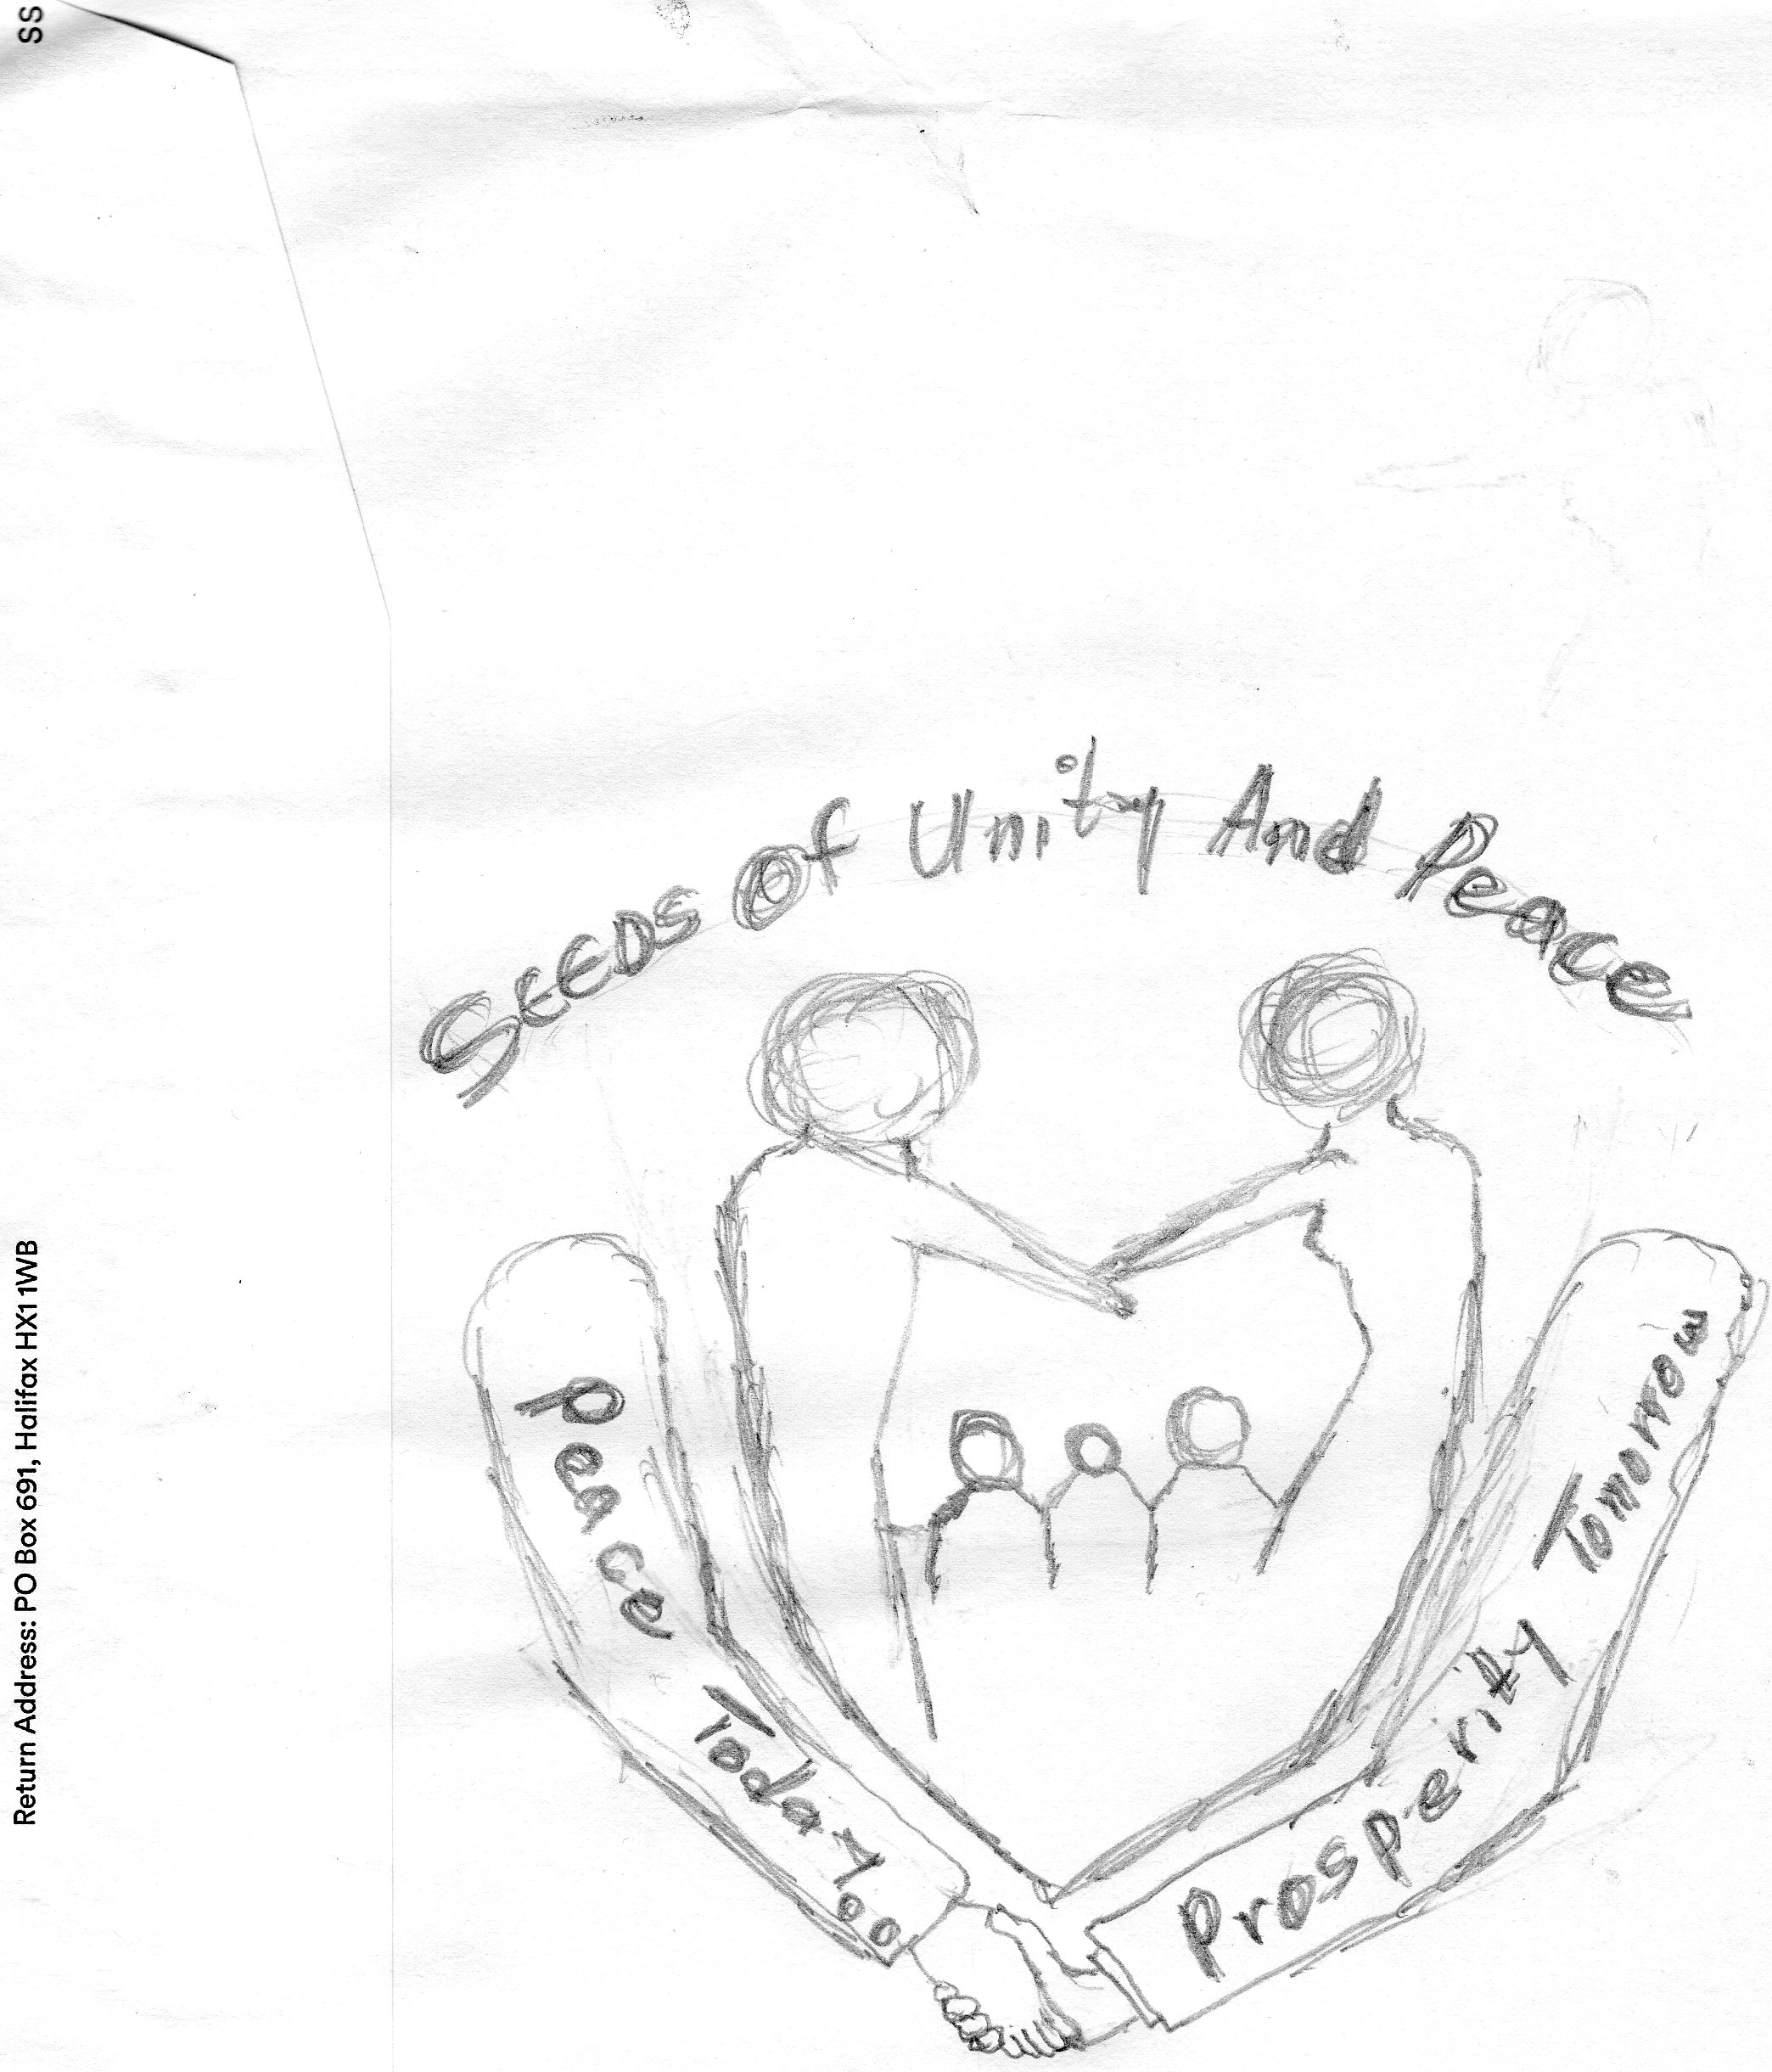 SS
Return Address: PO Box 691, Halifax HX1 1WB
SEEDS Of Unity And Peace
Peace Today
Prosperity Tomorrow